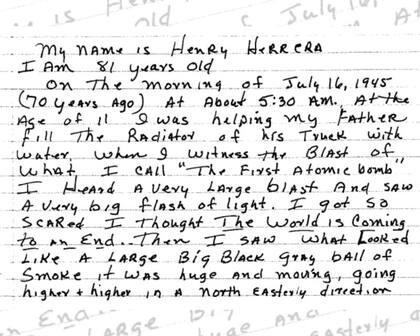 My name is Henry Herrera
I Am 81 years old
On the morning of July 16, 1945
(70 years ago) At About 5:30 AM. At the
Age of 11 I was helping my Father
Fill The Radiator of his Truck with
water, when I witness the Blast of
what, I CALL "The First Atomic bomb"
I Heard A very Large blast And saw
A very big flash of light. I got so
scared I thought The World is Coming
to an End.. Then I saw what Looked
Like A LARge Big Black gray ball of
Smoke it was huge and moving, going
higher + higher in A north Easterly direction